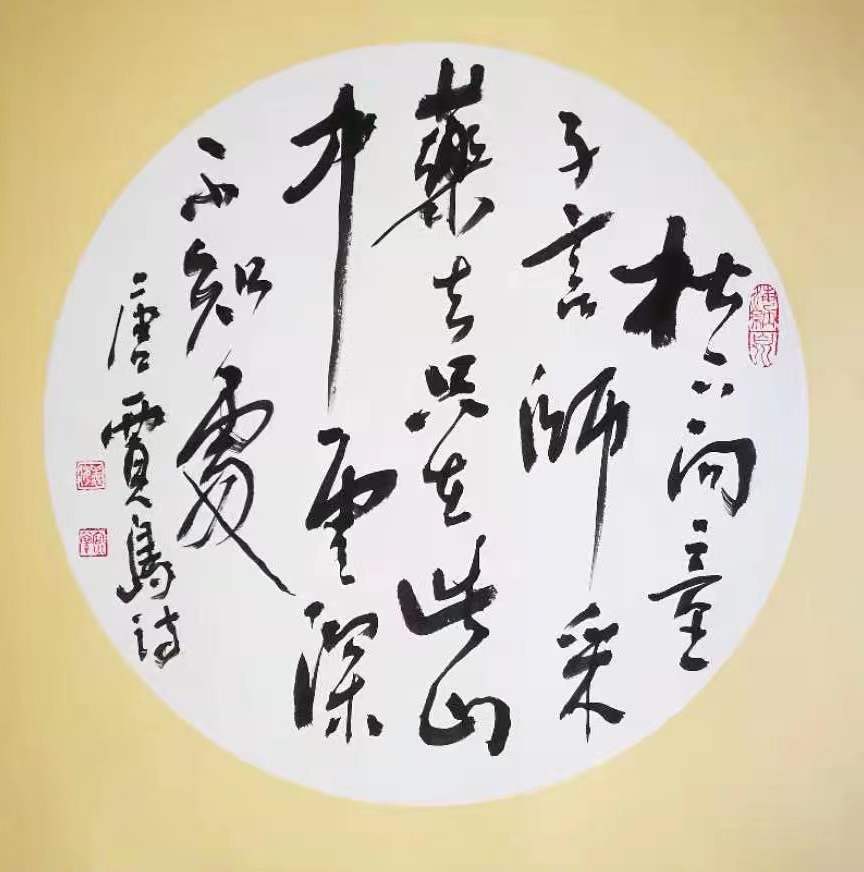 松下问童
子言師采
藥去只在此山
中雲深
不知處
唐賈島詩